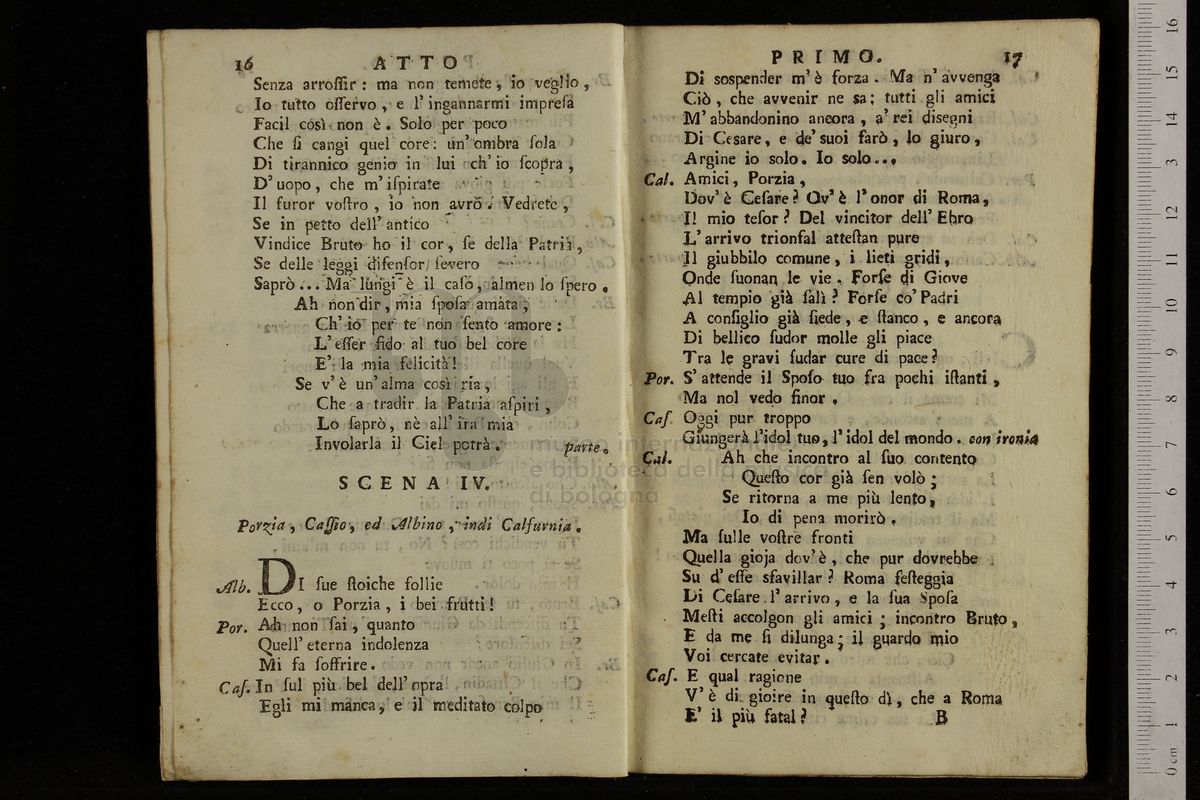 16 ATTO
Senza arroſſir : ma non temete, io veglio,
Io tutto oſſervo, e l' ingannarmi impreſa
Facil così non è. Solo per poco
Che ſi cangi quel core: un' ombra ſola
Di tirannico genio in lui ch' io ſcopra,
D' uopo, che m' iſpirate
Il furor voſtro, io non avrò. Vedrete,
Se in petto dell' antico
Vindice Bruto ho il cor, ſe della Patria,
Se delle leggi difenſor ſevero
Saprò... Ma lungi è il caſo, almen lo ſpero.
Ah non dir, mia ſpoſa amata,
Ch' io per te non ſento amore:
L' eſſer fido al tuo bel core
E' la mia felicità!
Se v' è un' alma così ria,
Che a tradir la Patria aſpiri,
Lo ſaprò, nè all' ira mia
Involarla il Ciel potrà. parte.
SCENA IV.
Porzia, Caſſio, ed Albino, indi Calfurnia.
Alb. DI ſue ſtoiche follie
Ecco, o Porzia, i bei frutti!
Por. Ah non ſai, quanto
Quell' eterna indolenza
Mi fa ſoffrire.
Caſ. In ſul più bel dell' opra
Egli mi manca, e il meditato colpo
PRIMO. 17
Di sospender m' è forza. Ma n' avvenga
Ciò, che avvenir ne sa; tutti gli amici
M' abbandonino ancora, a' rei disegni
Di Cesare, e de' suoi farò, lo giuro,
Argine io solo. Io solo...
Cal. Amici, Porzia,
Dov' è Ceſare? Ov' è l' onor di Roma,
Il mio teſor? Del vincitor dell' Ebro
L' arrivo trionfal atteſtan pure
Il giubbilo comune, i lieti gridi,
Onde ſuonan le vie. Forſe di Giove
Al tempio già ſalì? Forſe co' Padri
A conſiglio già ſiede, e ſtanco, e ancora
Di bellico ſudor molle gli piace
Tra le gravi ſudar cure di pace?
Por. S' attende il Spoſo tuo fra pochi iſtanti,
Ma nol vedo ſinor.
Caſ. Oggi pur troppo
Giungerà l' idol tuo, l' idol del mondo. con ironia
Cal. Ah che incontro al ſuo contento
Queſto cor già ſen volò;
Se ritorna a me più lento,
Io di pena morirò.
Ma ſulle voſtre fronti
Quella gioja dov' è, che pur dovrebbe
Su d' eſſe sfavillar? Roma feſteggia
Di Ceſare l' arrivo, e la ſua Spoſa
Meſti accolgon gli amici; incontro Bruto,
E da me ſi dilunga; il guardo mio
Voi cercate evitar.
Caſ. E qual ragione
V' è di gioire in queſto dì, che a Roma
E' il più fatal? B
museo internazionale
e biblioteca della musica
di bologna
0 cm 1 2 3 4 5 6 7 8 9 10 11 12 13 14 15 16